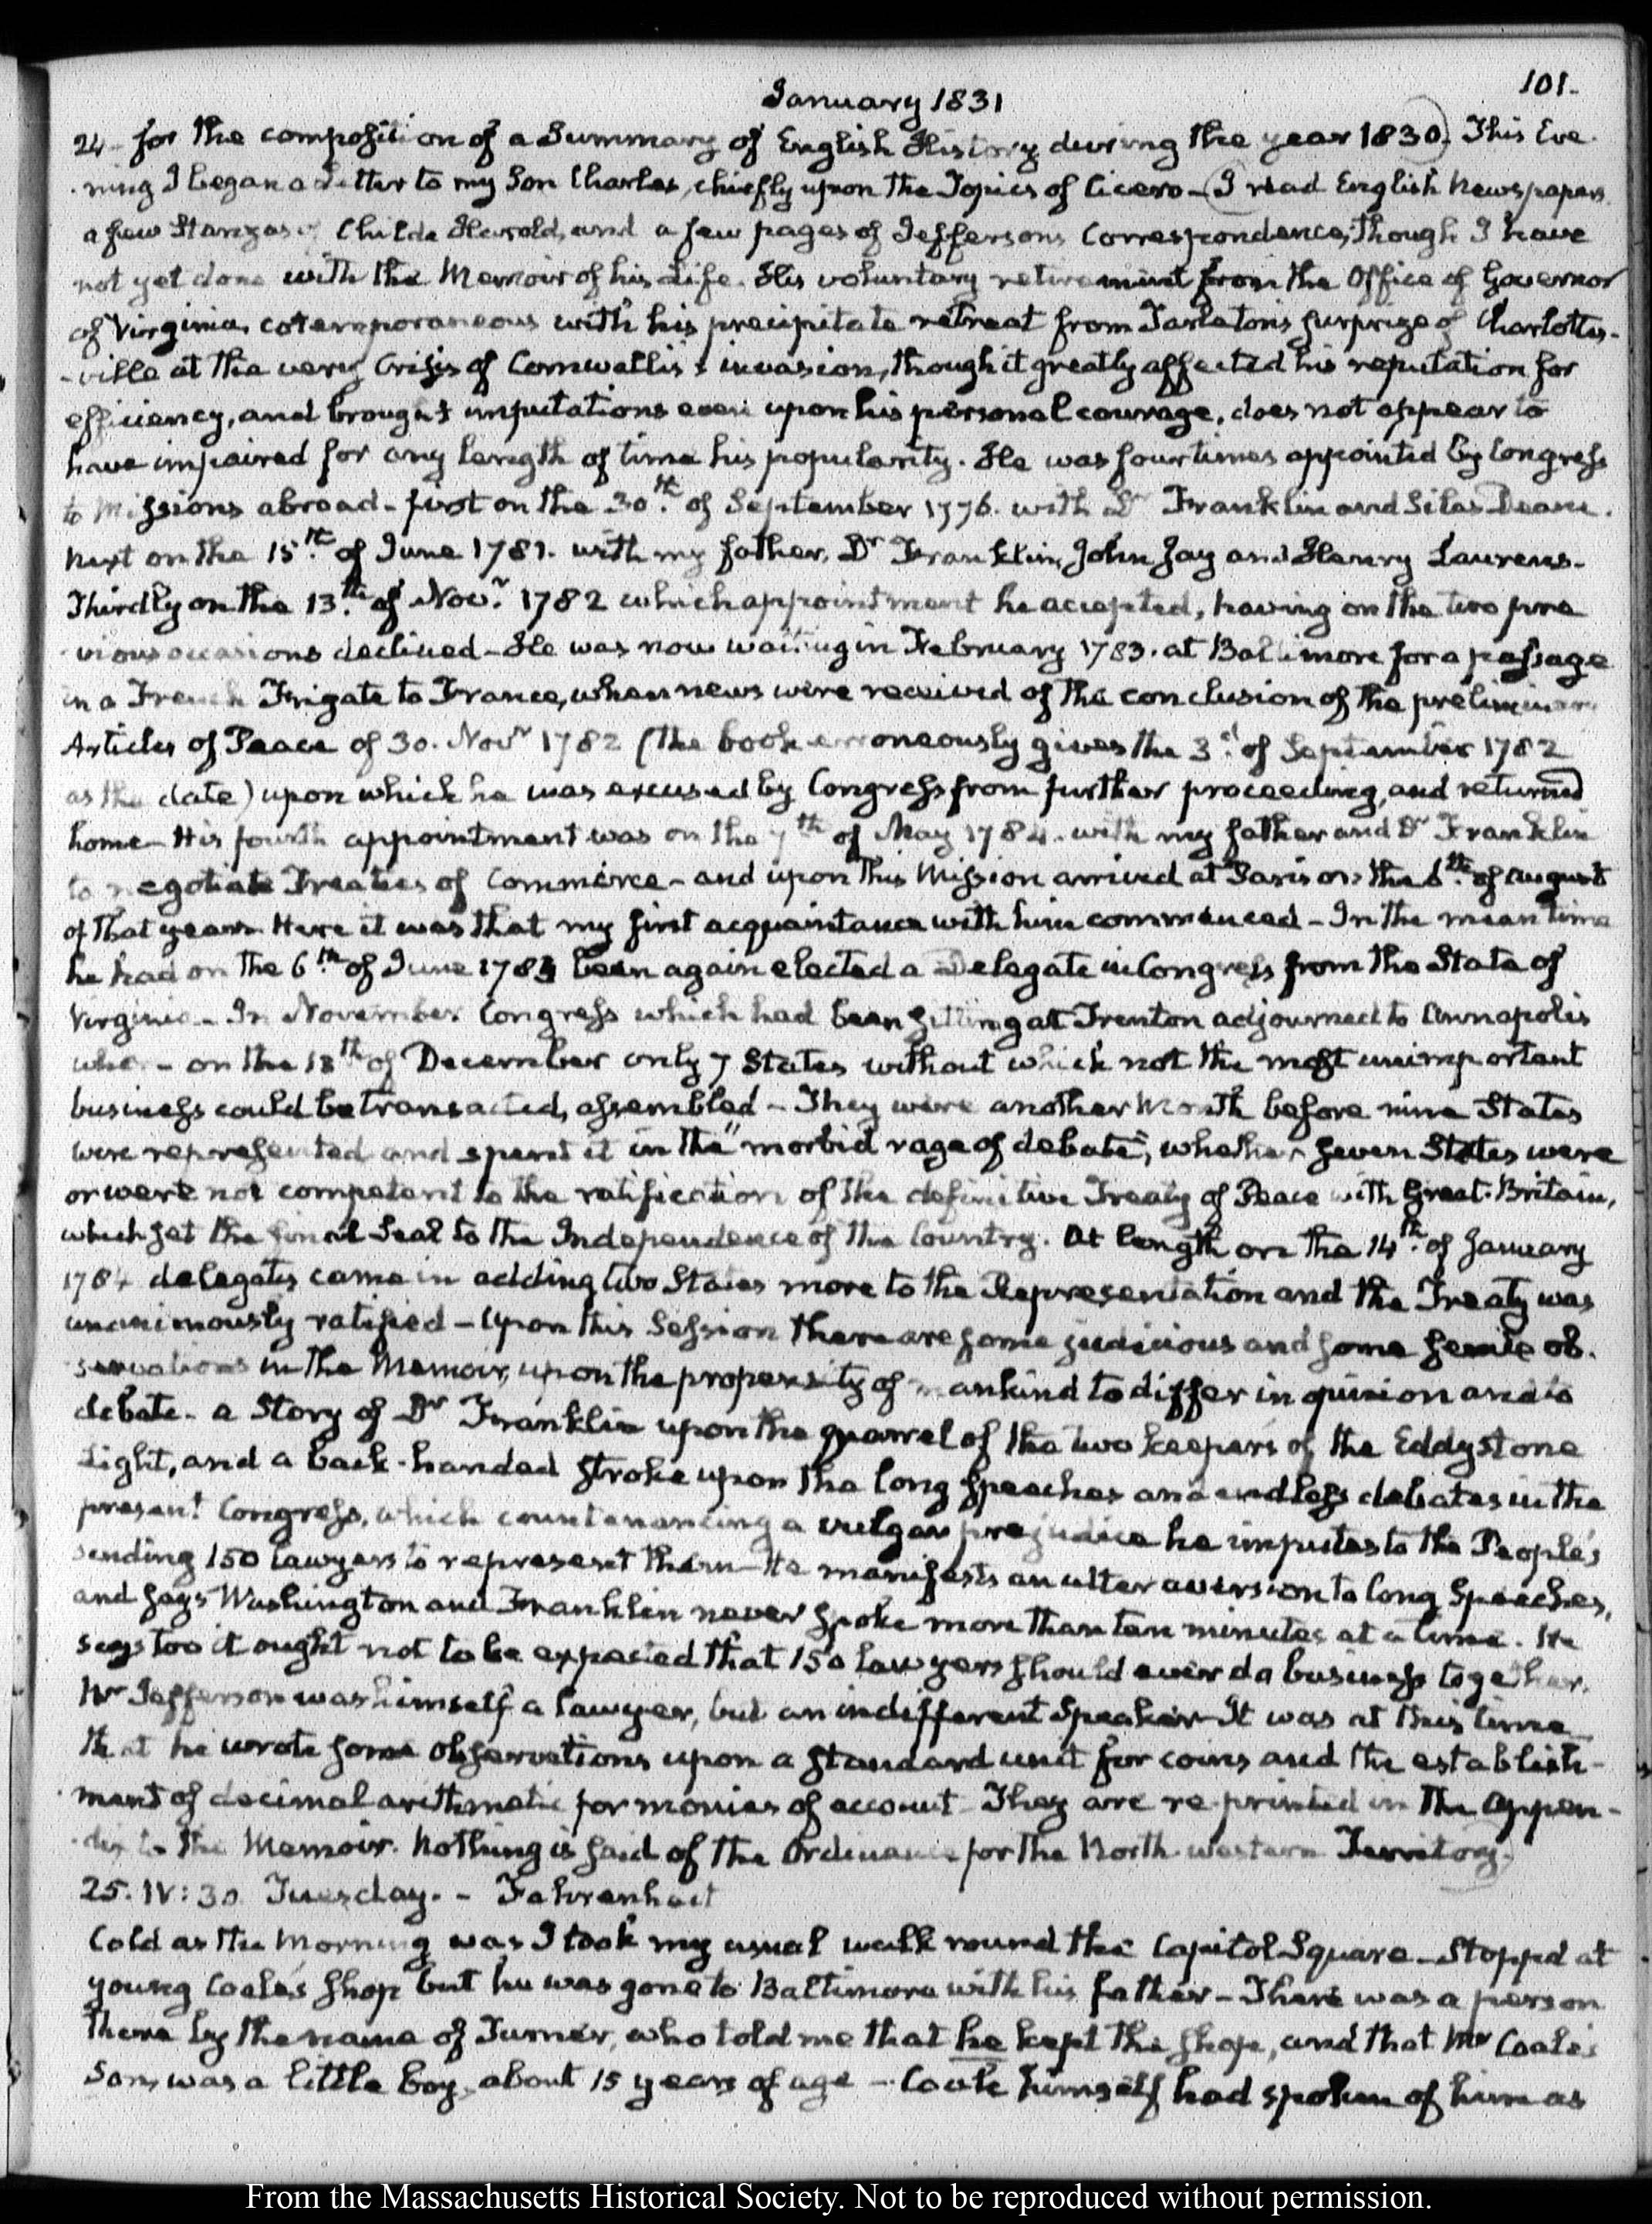 January 1831
101.
24. for the composition of a Summary of English History during the year 1830. This Eve-
-ning I began a Letter to my Son Charles, chiefly upon the Topics of Cicero - I read English Newspapers.
a few Stanzas of Childe Harold, and a few pages of Jeffersons Correspondence, though I have
not yet done with the Memoir of his Life. His voluntary retirement from the Office of Governor
of Virginia, cotemporaneous with his precipitate retreat from Tarleton's surprize of Charlottes-
-ville at the very Crisis of Cornwallis's invasion, though it greatly affected his reputation for
efficiency, and brought imputations even upon his personal courage, does not appear to
have impaired for any length of time his popularity. He was four times appointed by Congress
to Missions abroad - first on the 30th. of September 1776. with Dr Franklin and Silas Deane.
next on the 15th. of June 1781. with my father, Dr Franklin, John Jay and Henry Laurens.
Thirdly on the 13th. of Novr. 1782 which appointment he accepted, having on the two pre
-vious occasions declined - He was now waiting in February 1783. at Baltimore for a passage
in a French Frigate to France, when news were received of the conclusion of the preliminary
Articles of Peace of 30. Novr 1782 (the book erroneously gives the 3d. of September 1782
as the date) upon which he was excused by Congress from further proceeding, and returned
home - His fourth appointment was on the 7th of May 1784. with my father and Dr Franklin
to negotiate Treaties of Commerce - and upon this Mission arrived at Paris on the 6th. of August
of that year. Here it was that my first acquaintance with him commenced - In the mean time
he had on the 6th. of June 1783 been again elected a Delegate in Congress from the State of
Virginia - In November Congress which had been sitting at Trenton adjourned to Annapolis
where - on the 13th of December only 7 States without which not the most unimportant
business could be transacted, assembled - They were another Month before nine States
were represented and spent it in the "morbid rage of debate", whether seven States were
or were not competent to the ratification of the definitive Treaty of Peace with Great-Britain,
which set the final Seal to the Independence of the Country. At length on the 14th. of January
1784 delegates came in adding two States more to the Representation and the Treaty was
unanimously ratified - Upon this Session there are some judicious and some senile ob-
servations in the Memoir, upon the propensity of mankind to differ in opinion and to
debate - a Story of Dr Franklin upon the quarrel of the two keepers of the Eddystone
Light, and a back-handed stroke upon the long speeches and endless debates in the
present Congress, which countenancing a vulgar prejudice he imputes to the People's
sending 150 lawyers to represent them - He manifests an utter aversion to long Speeches,
and says Washington and Franklin never spoke more than ten minutes at a time. He
says too it ought not to be expected that 150 lawyers should ever do business together.
Mr Jefferson was himself a lawyer, but an indifferent Speaker - It was at this time
that he wrote some observations upon a standard unit for coins and the establish-
ment of decimal arithmetic for monies of account - They are re-printed in the Appen-
-dix to the Memoir. Nothing is said of the Ordinance for the North-western Territory.
25. IV:30. Tuesday. - Fahrenheit
Cold as the Morning was I took my usual walk round the Capitol Square - Stopped at
young Coale's Shop but he was gone to Baltimore with his father - There was a person
there by the name of Turner, who told me that he kept the shop, and that Mr Coale's
Son, was a little boy, about 15 years of age - Coale himself had spoken of him as
From the Massachusetts Historical Society. Not to be reproduced without permission.